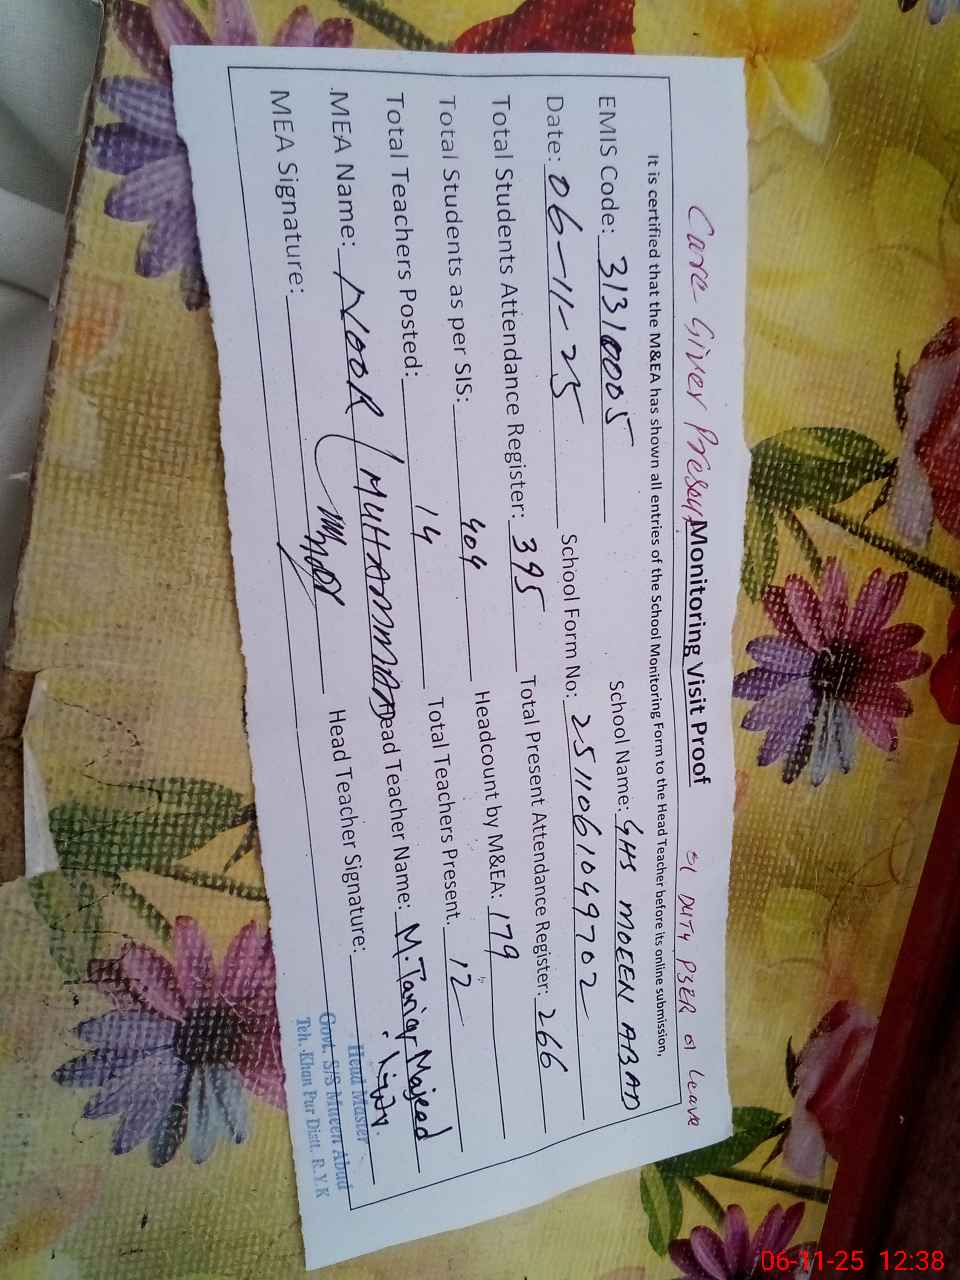 Care Giver Present Monitoring Visit Proof 01 DUTY PSER 01 Leave
It is certified that the M&EA has shown all entries of the School Monitoring Form to the Head Teacher before its online submission,
EMIS Code: 31310005 School Name: GHS MOEEN ABAD
Date: 06-11-25 School Form No: 251106109702
Total Students Attendance Register: 395 Total Present Attendance Register: 266
Total Students as per SIS: 404 Headcount by M&EA: 179
Total Teachers Posted: 14 Total Teachers Present. 12
MEA Name: NOOR MUHAMMAD Head Teacher Name: M. Tariq Majeed
MEA Signature: Head Teacher Signature:
Head Master
Govt. S/S Mueen Abad
Teh. Khan Pur Distt. R.Y.K
06-11-25 12:38